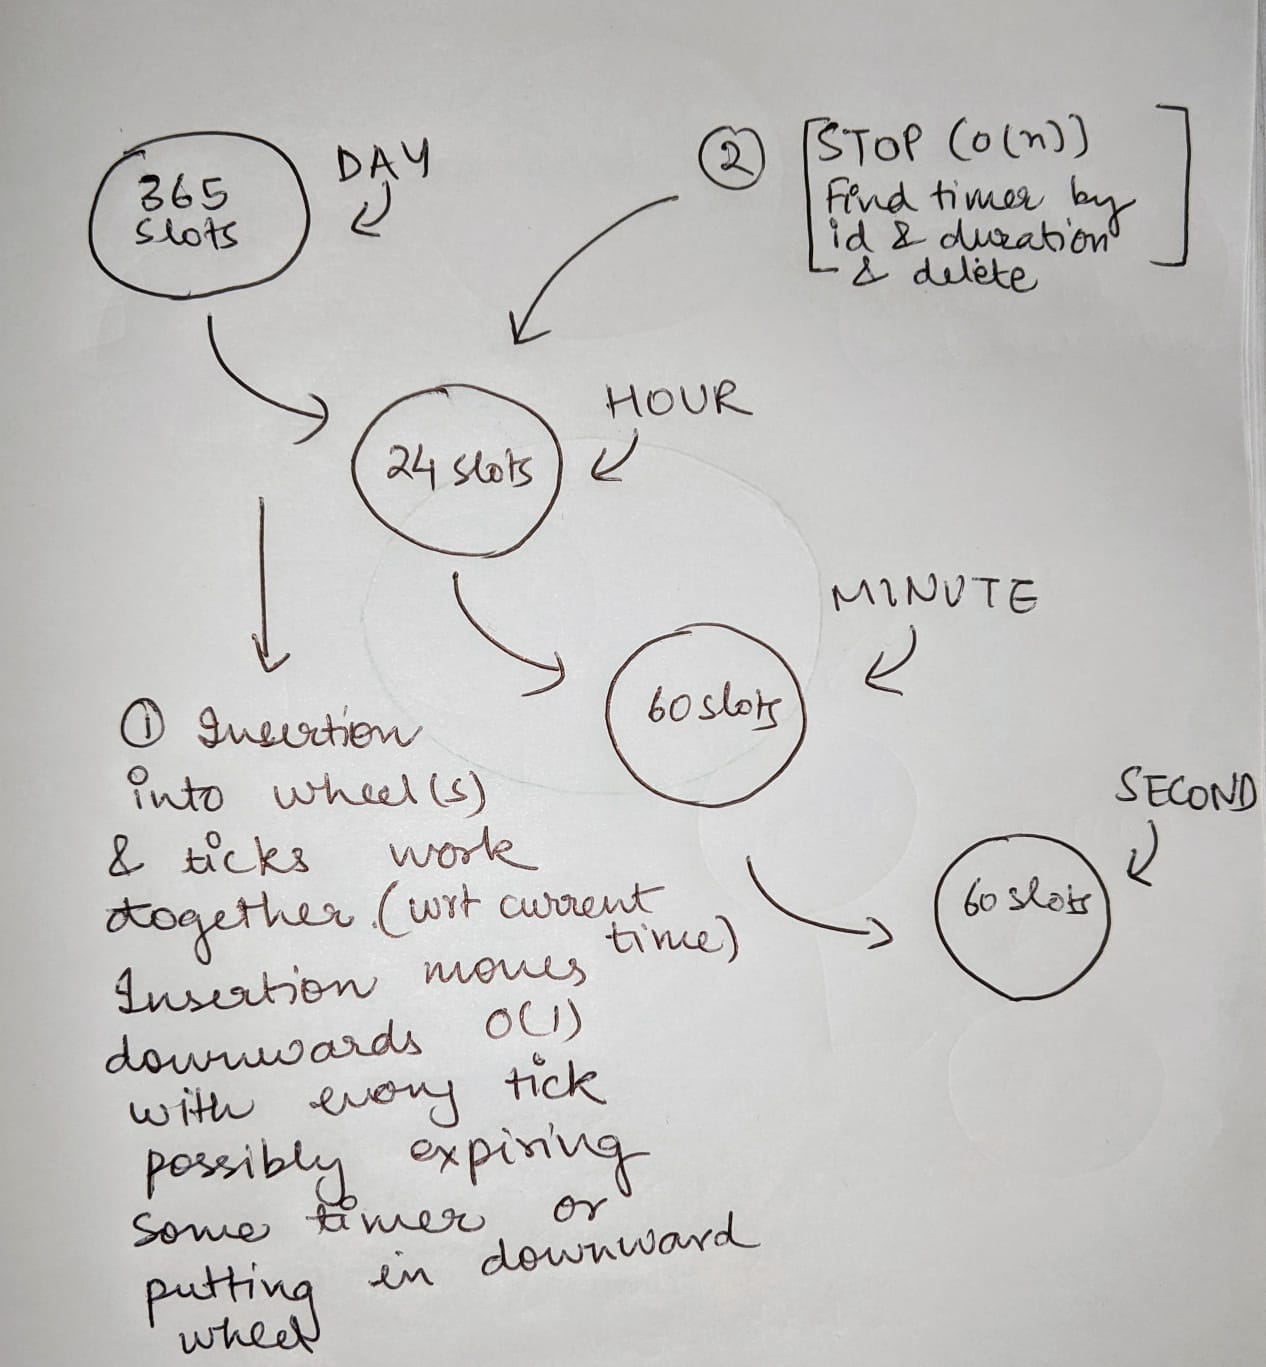 365
slots
DAY
② [STOP (O(n))
Find timer by
id & duration
& delete]
24 slots
HOUR
60 slots
MINUTE
60 slots
SECOND
① Insertion
into wheel(s)
& ticks work
together. (wrt current
time)
Insertion moves
downwards O(1)
with every tick
possibly expiring
some timer or
putting in downward
wheel